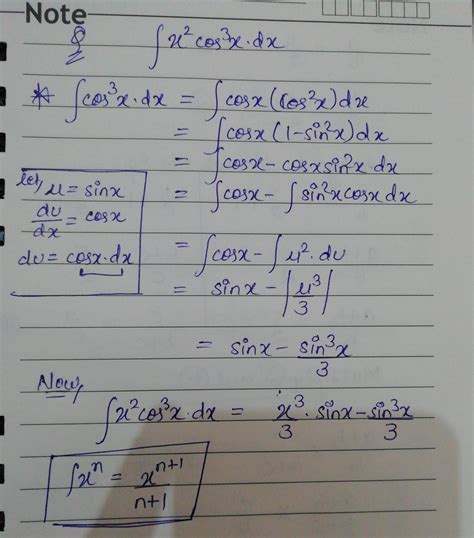 Note
Q ∫x²cos³x·dx
* ∫cos³x·dx = ∫cosx(cos²x)dx
= ∫cosx(1-sin²x)dx
= ∫cosx-cosxsin²x·dx
= ∫cosx-∫sin²xcosxdx
let, u = sinx
du/dx = cosx
du = cosx·dx
= ∫cosx-∫u²·du
= sinx-|u³/3|
= sinx-sin³x/3
Now,
∫x²cos³x·dx = x³/3·sinx-sin³x/3
∫xⁿ = xⁿ⁺¹/n+1